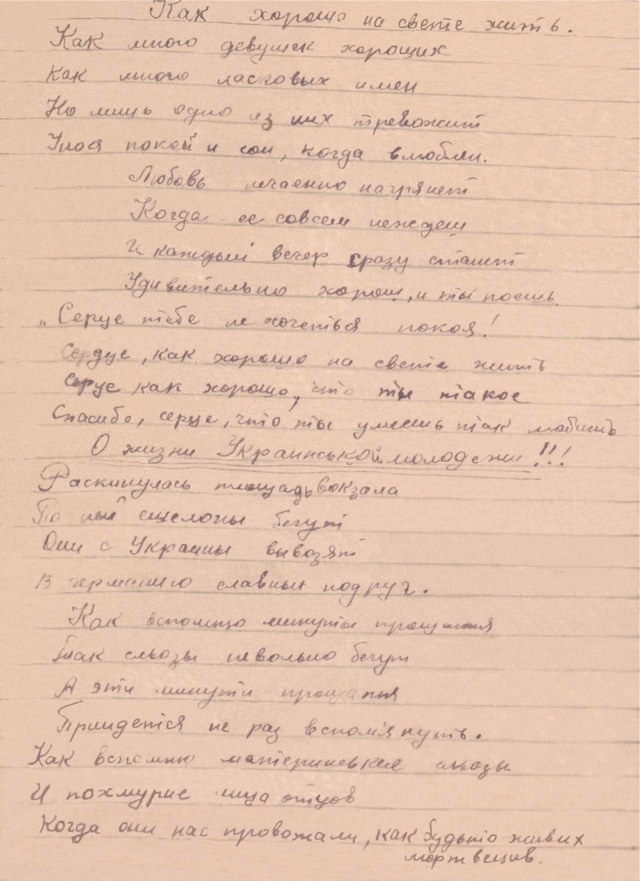 Как хорошо на свете жить.
Как много девушек хороших
Как много ласковых имен
Но лишь одно из них тревожит
Унося покой и сон, когда влюблен.
Любовь нечаенно нагрянет
Когда ее совсем неждеш
И каждый вечер сразу станет
Удивительно хорош, и ты поешь
„Серце тебе не хочеться покоя!
Сердце, как хорошо на свете жить
Серце как хорошо, что ты такое
Спасибо, серце, что ты умеешь так любить
О жизни Украинськой молодежи!!!
Раскинулась площадь вокзала
По ный ешелоны бегут
Они с Украины вывозят
В германию славных подруг.
Как вспомню минуты прощання
Так сльозы невольно бегут
А эти минути прощання
Прийдется не раз вспом'януть.
Как вспомню материнские сльозы
И похмурие лица отцов
Когда они нас провожали, как будьто живих
мертвецов.